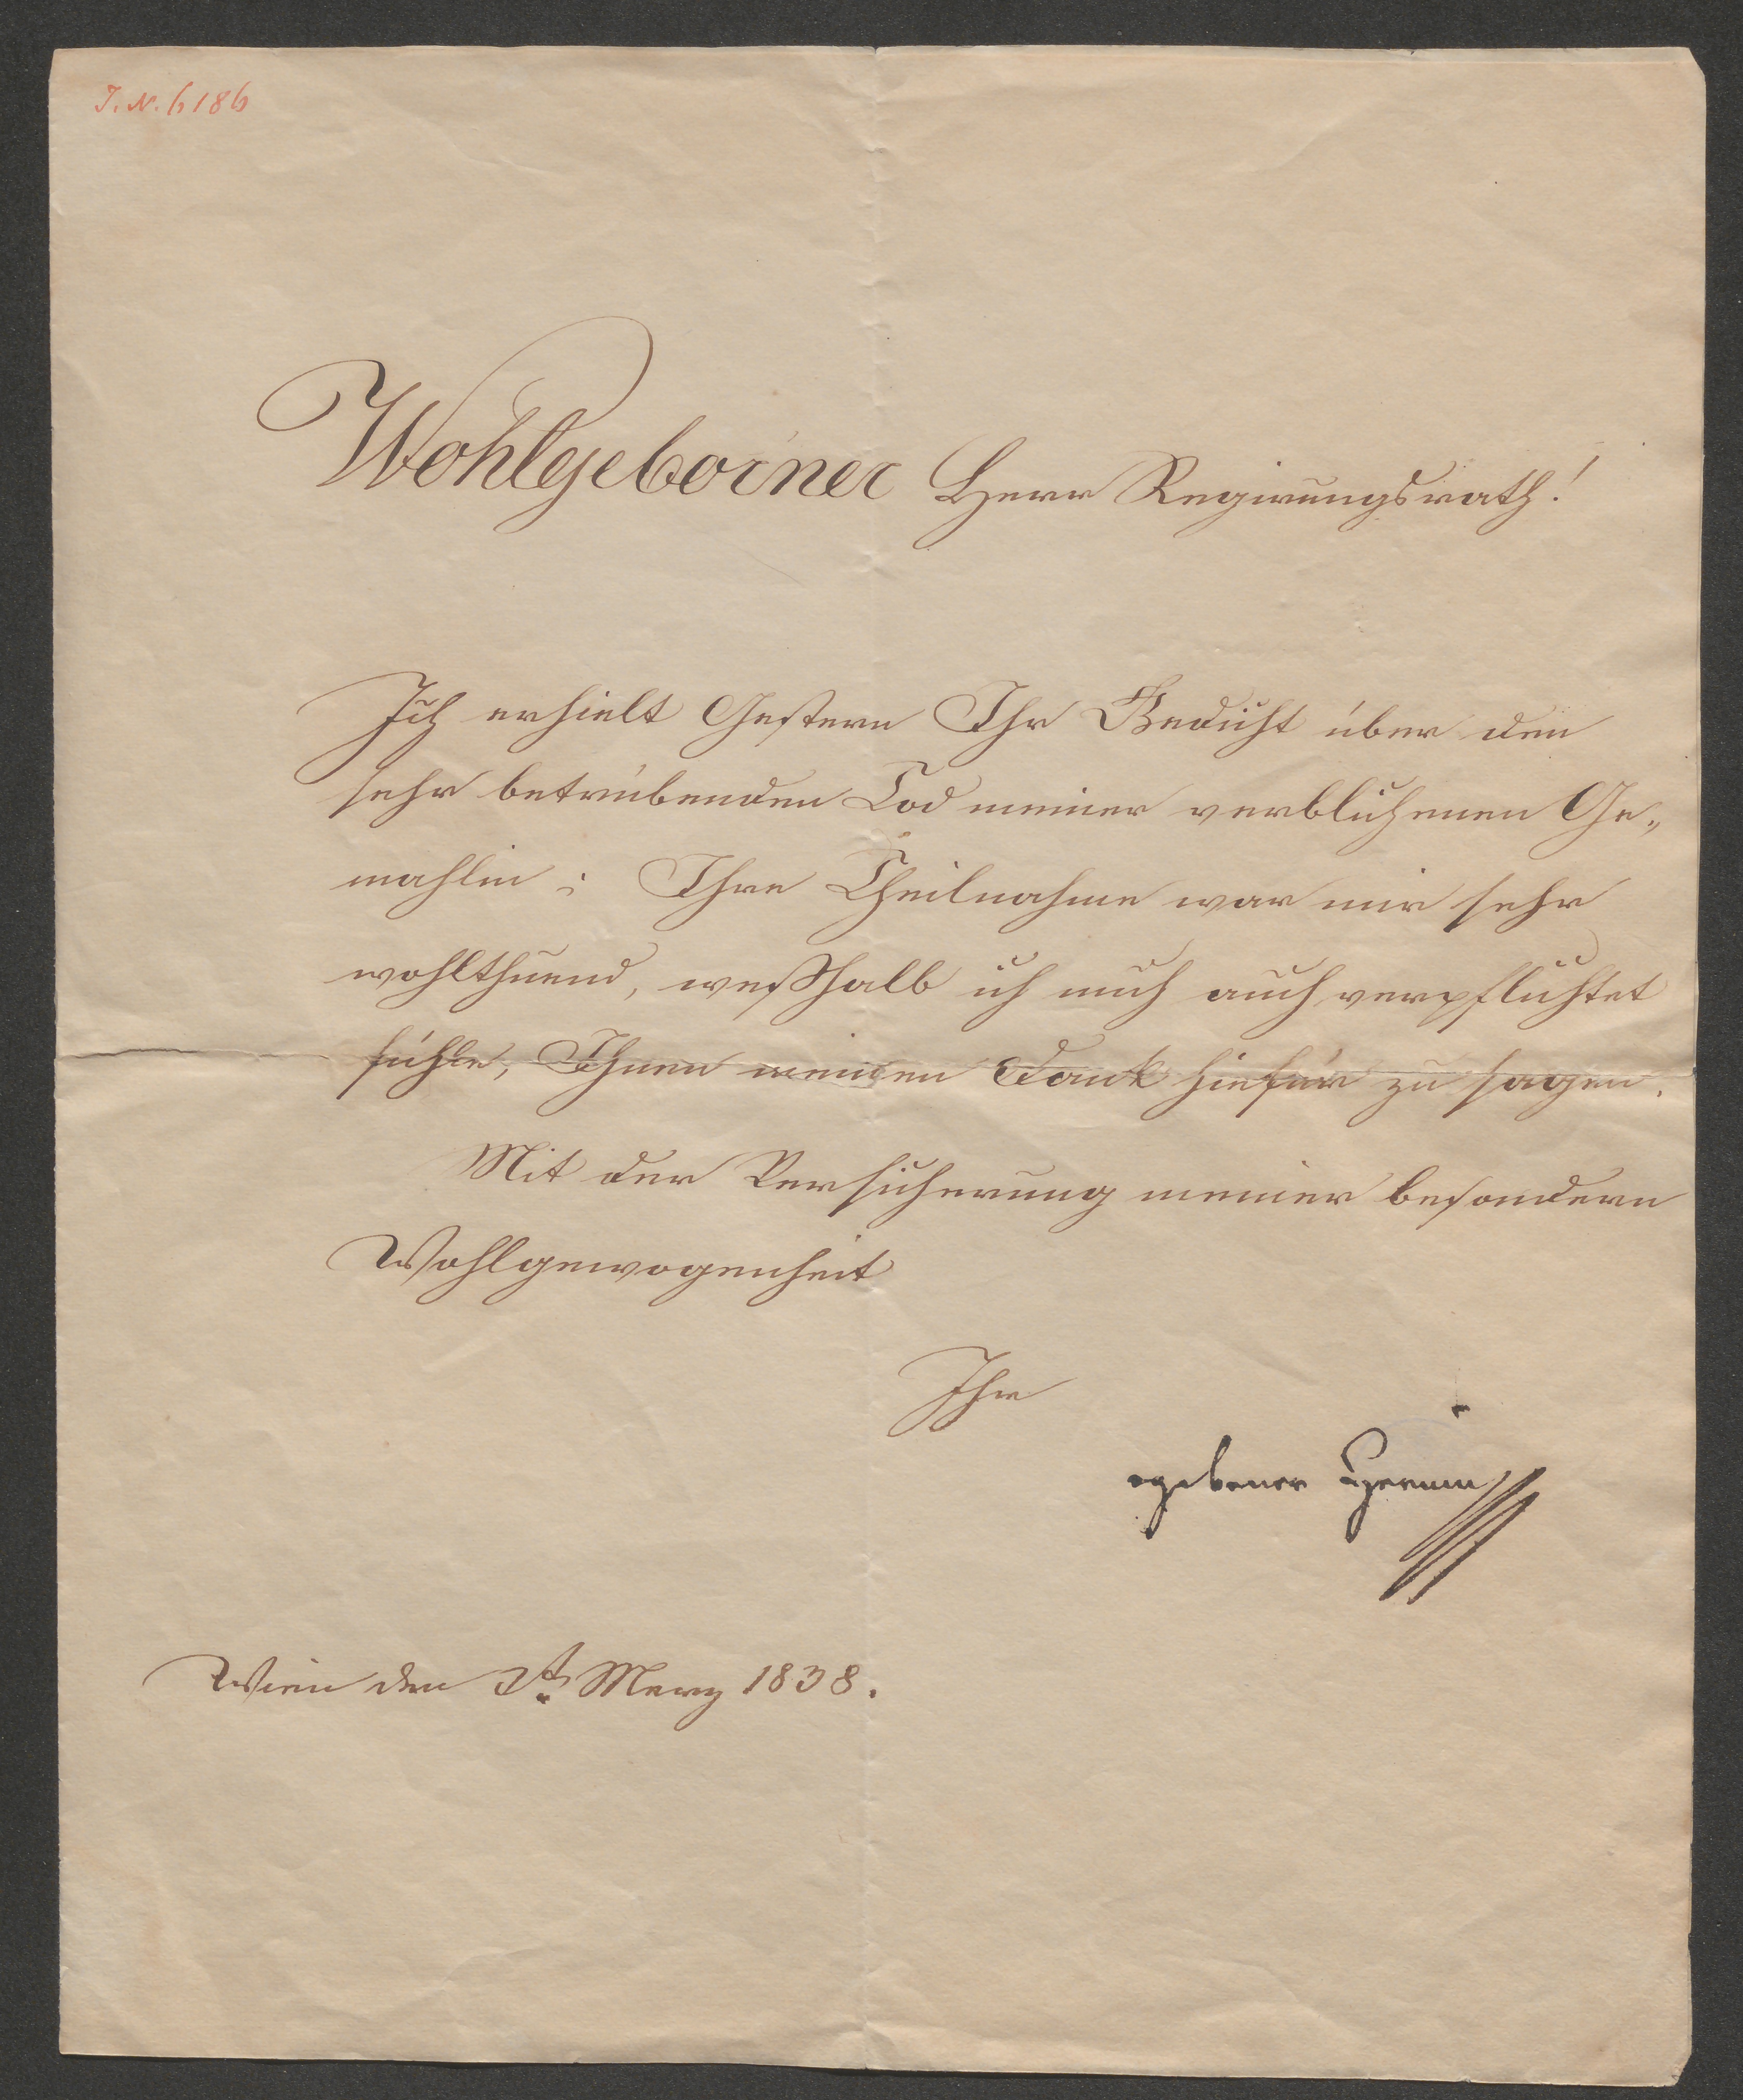 J. N. 6186
Wohlgeborner Herr Regirungsrath!
Ich erhielt Gestern Ihr Gedicht über den
sehr betrübenden Tod meiner verblichenen Ge„
mahlin; Ihre Theilnahme war mir sehr
wohlthuend, weßhalb ich mich auch verpflichtet
fühle, Ihnen meinen Dank hiefür zu sagen.
Mit der Versicherung meiner besondern
Wohlgewogenheit
Ihr
Wien den März 1838.